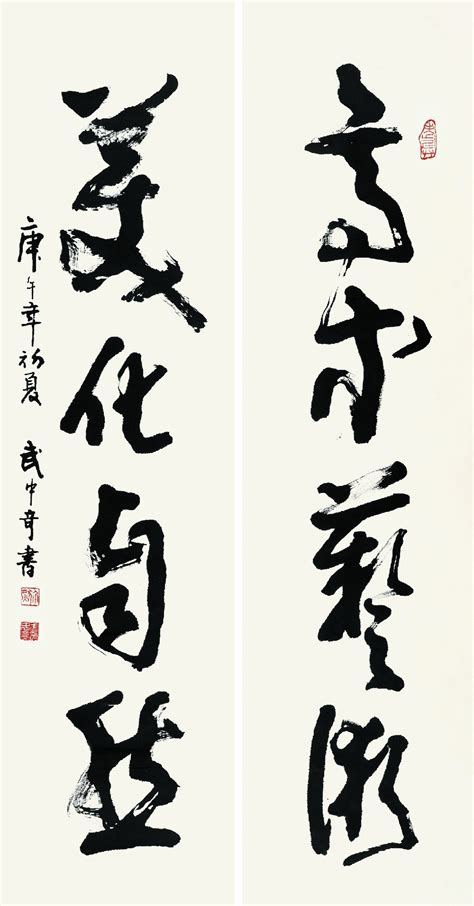 高藝術
美化自然
庚午年初夏 武中奇書